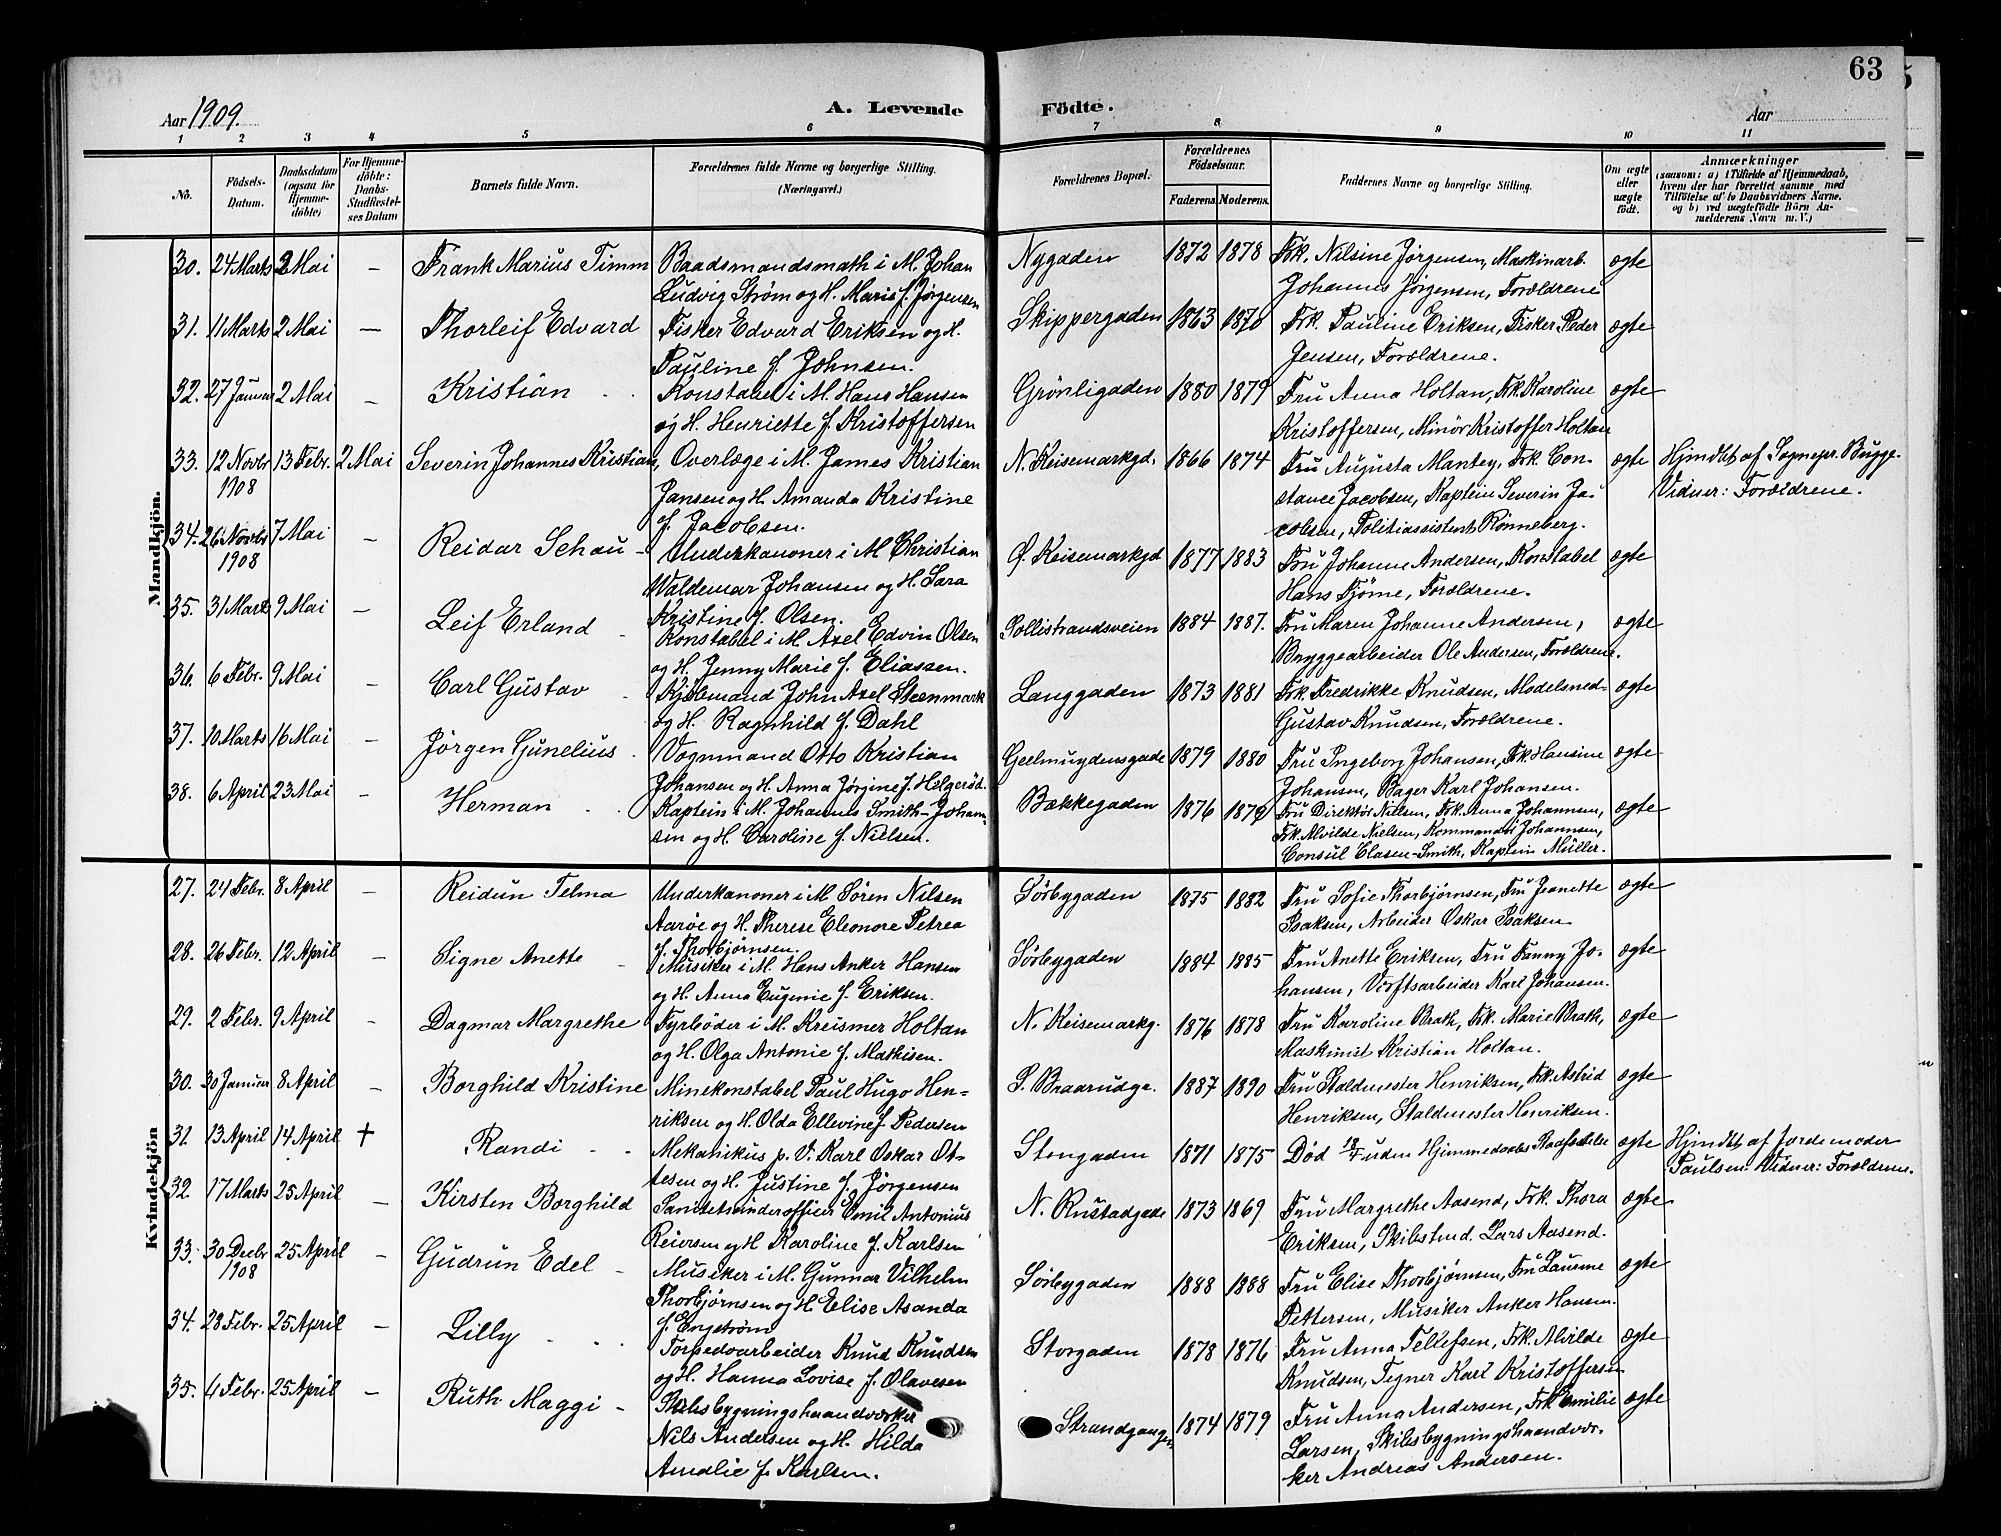 63
Aar 1909.
A. Levende Födte.
Aar
1 2 3 4 5 6 7 8 9 10 11
No.
Födsels-
Datum.
Daabsdatum
(ogsaa för
Hjemme-
döbte)
For Hjemme-
döbte:
Daabs-
Stadfæstel-
ses Datum
Barnets fulde Navn.
Forældrenes fulde Navne og borgerlige Stilling.
(Næringsvei.)
Forældrenes Bopæl.
Forældrenes
Födselsaar.
Faderens. Moderens.
Faddernes Navne og borgerlige Stilling.
Om ægte
eller
uægte
födt.
Anmærkninger
(saasom: a) i Tilfælde af Hjemmedaab,
hvem der har forrettet samme med
Tilföielse af to Daabsvidners Navne.
og b) ved uægtefödte Börn An-
melderens Navn m. V.)
Mandkjön.
30. 24 Marts 2 Mai — Frank Marius Timm Baadsmandsmath i M. Johan Nygaden 1872 1878 Frk. Nilsine Jørgensen, Maskinarb. ægte
Ludvig Strøm og H. Marie f. Jørgensen Johannes Jørgensen, Forældrene
31. 11 Marts 2 Mai — Thorleif Edvard Fisker Edvard Eriksen og H. Skippergaden 1863 1870 Frk. Pauline Eriksen, Fisker Peder ægte
Pauline f. Johnsen. Jensen, Forældrene.
32. 27 Januar 2 Mai — Kristian Konstabel i M. Hans Hansen Grönligaden 1880 1879 Fru Anna Holtan, Frk. Karoline ægte
og H. Henriette f. Kristoffersen Kristoffersen, Minör Kristoffer Holtan
33. 12 Novbr 13 Febr. 2 Mai Severin Johannes Kristian, Overlæge i M. James Kristian N. Keisemarkgd. 1866 1874 Fru Augusta Mantey, Frk. Con- ægte Hjmdbt af Sognepr. Bugge.
1908 Jansen og H. Amanda Kristine stance Jacobsen, Kaptein Severin Ja- Vidner: Forældrene.
f. Jacobsen. cobsen, Politiassistent Rönneberg.
34. 26 Novbr 7 Mai — Reidar Schau - Underkanoner i M Christian Ø. Keisemarkgd 1877 1883 Fru Johanne Andersen, Konstabel ægte
1908 Waldemar Johansen og H. Sara Hans Tjöme, Forældrene.
Kristine f. Olsen.
35. 31 Marts 9 Mai — Leif Erland Konstabel i M. Axel Edvin Olsen Sollistrandsveien 1884 1887. Fru Maren Johanne Andersen, ægte
og H. Jenny Marie f. Eliassen. Bryggearbeider Ole Andersen, Forældrene.
36. 6 Febr. 9 Mai — Carl Gustav Kjöbmand John Axel Steenmark Langgaden 1873 1881 Frk. Fredrikke Knudsen, Modelsned- ægte
og H. Ragnhild f. Dahl Gustav Knudsen, Forældrene.
37. 10 Marts 16 Mai — Jørgen Gunelius Vognmand Otto Kristian Geelmuydensgade 1879 1880 Fru Ingeborg Johansen, Frk. Hansine ægte
Johansen og H. Anna Jørgine f. Helgeröd. Johansen, Bager Karl Johansen.
38. 6 April 23 Mai — Herman Kaptein i M. Johannes Smith-Johan- Bækkegaden 1876 1879 Fru Direktör Nielsen, Frk. Anna Johannsen, ægte
sen og H. Caroline f. Nielsen. Frk. Alvilde Nielsen, Kommandör Johannsen,
Consul Clasen-Smith, Kaptein Müller.
Kvindekjön
27. 24 Febr. 8 April — Reidun Telma Underkanoner i M Sören Nilsen Sörbygaden 1875 1882 Fru Sofie Thorbjørnsen, Fru Jeanette ægte
Aaröe og H. Therese Eleonore Petrea Isaksen, Arbeider Oskar Isaksen
f. Thorbjørnsen.
28. 26 Febr. 12 April — Signe Anette Musiker i M. Hans Anker Hansen Sörbygaden 1884 1885 Fru Anette Eriksen, Fru Fanny Jo- ægte
og H. Anna Eugenie f. Eriksen. hansen, Verftsarbeider Karl Johansen.
29. 2 Febr. 9 April — Dagmar Margrethe Fyrböder i M. Kreismer Holtan N. Keisemarkg. 1876 1878 Fru Karoline Brath, Frk. Marie Brath, ægte
og H. Olga Antonie f. Mathisen. Maskinist Kristian Holtan.
30. 30 Januar 8 April — Borghild Kristine Minekonstabel Paul Hugo Hen- S. Braarudgr. 1887 1890 Fru Staldmester Henriksen, Frk. Astrid ægte
riksen og H. Olda Ellevine f Pedersen Henriksen, Staldmester Henriksen.
31. 13 April 14 April † Randi Mekanikus p. V. Karl Oskar Ot- Storgaden 1871 1875 Död uden Hjemmedaabs Stadfæstelse ægte Hjmdbt af Jordemoder
tesen og H. Justine f. Jørgensen Paulsen. Vidner: Forældrene.
32. 17 Marts 25 April — Kirsten Borghild Sanitetsunderofficer Emil Antonius N. Rustadgade 1873 1869 Fru Margrethe Aasend, Frk. Thora ægte
Reiersen og H Karoline f. Karlsen Eriksen, Skibstmd. Lars Aasend.
33. 30 Decbr 25 April — Gudrun Edel Musiker i M. Gunnar Vilhelm Sörbygaden 1888 1888 Fru Elise Thorbjørnsen, Fru Laurine ægte
1908 Thorbjørnsen og H Elise Asanda Pettersen, Musiker Anker Hansen.
f. Engström
34. 28 Febr. 25 April — Lilly Torpedoarbeider Knud Knudsen Storgaden 1878 1876 Fru Anna Tellefsen, Frk. Alvilde ægte
og H. Hanna Lovise f. Olavesen Knudsen, Tegner Karl Kristoffersen
35. 4 Febr. 25 April — Ruth Maggi Skibsbygningshaandværker Strandgangen 1874 1879 Fru Anna Andersen, Frk Emilie ægte
Nils Andersen og H. Hilda Larsen, Skibsbygningshaandvær-
Amalie f. Karlsen. ker Andreas Andersen.